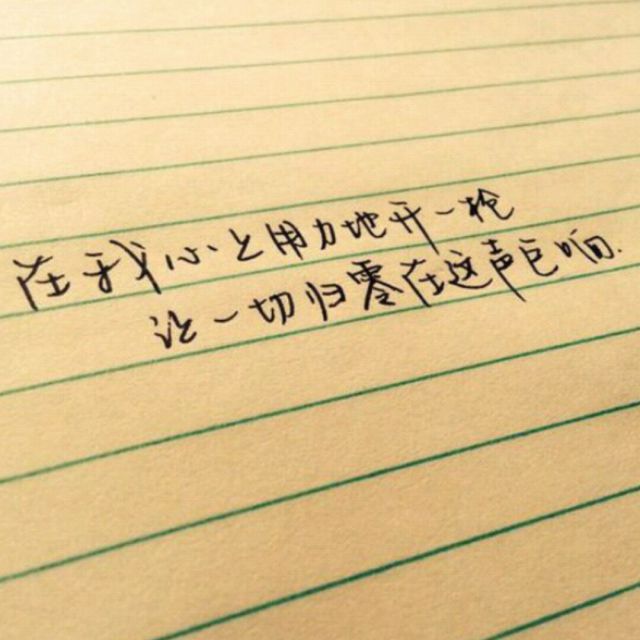 在我心上用力地开一枪
让一切归零在这声巨响.